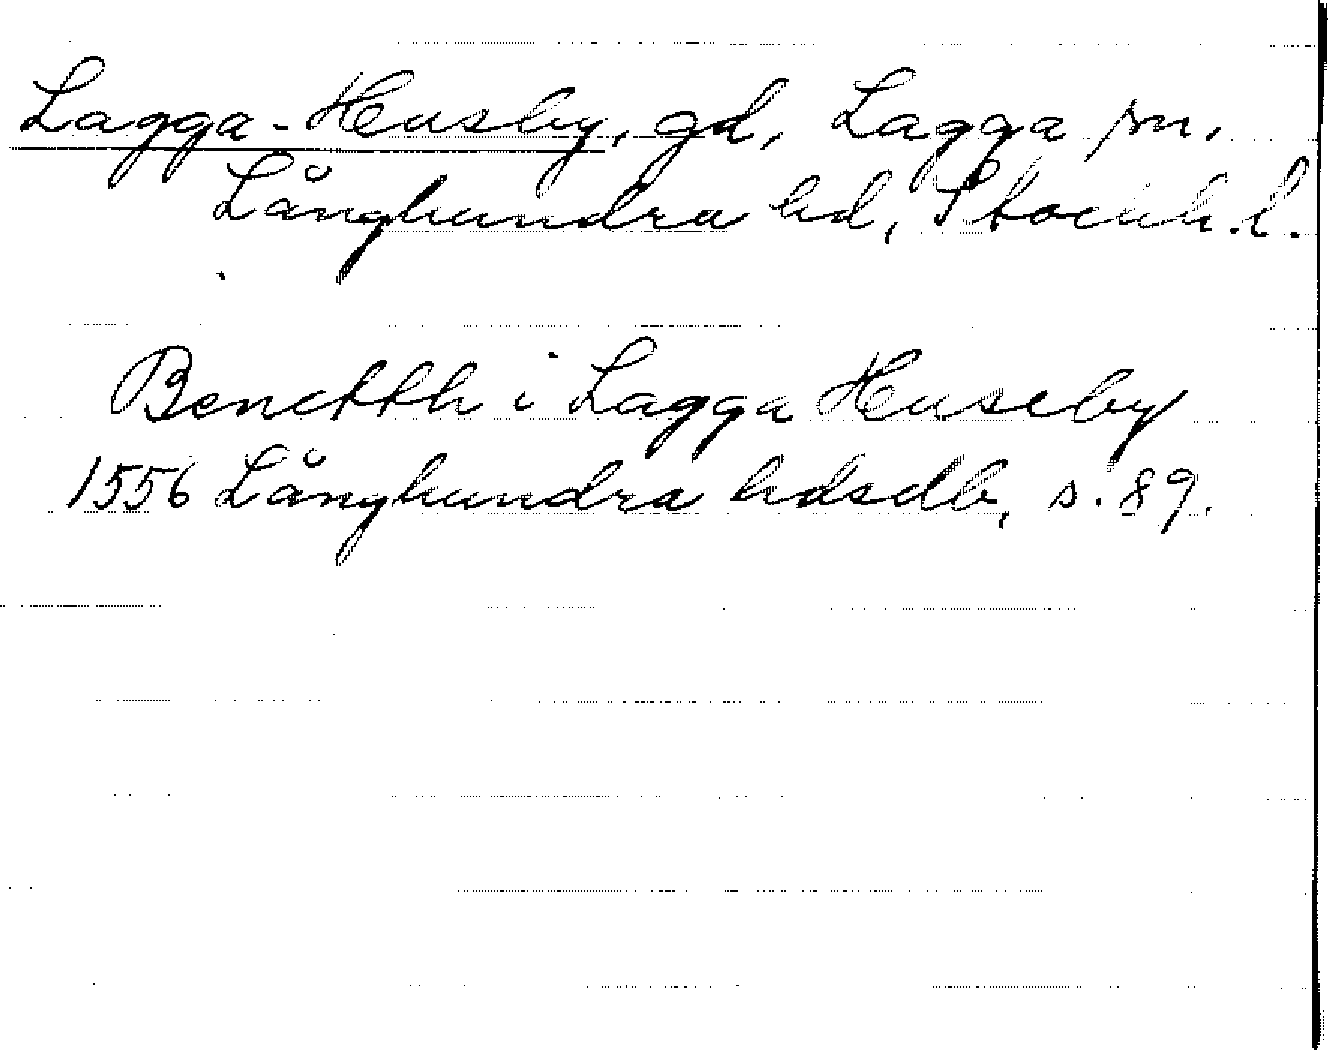 Lagga-Husby, gd, Lagga sn.
Långhundra hd, Stockh. l.
Benckth i Lagga Huseby
1556 Långhundra hdsdb, s. 89.